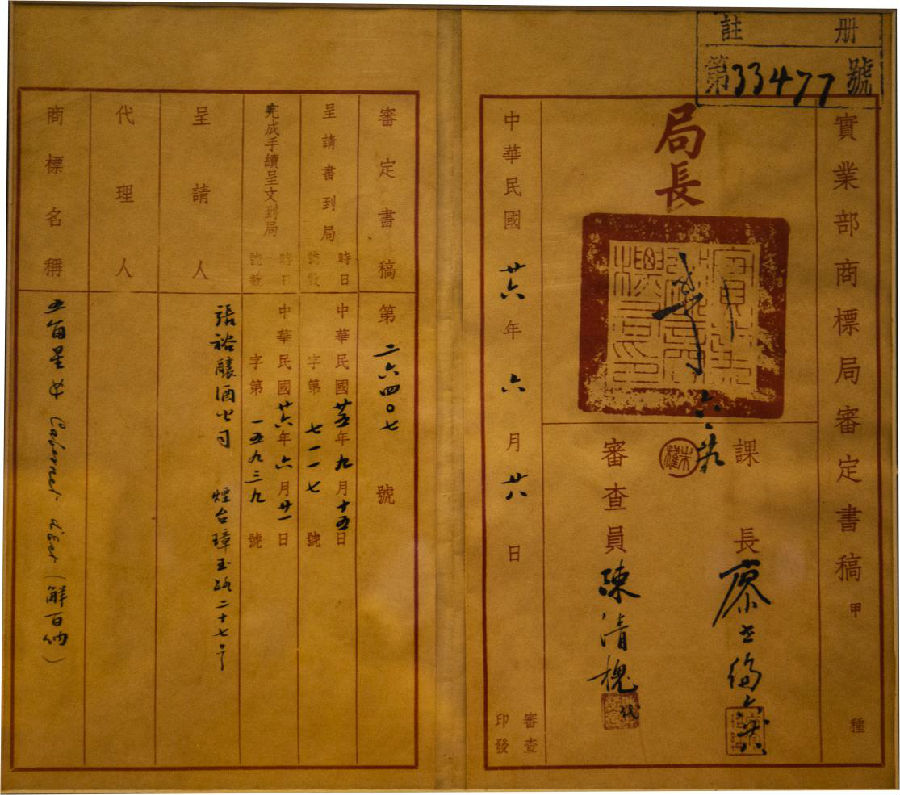 註冊
第33477號
實業部商標局審定書稿 甲種
局長
課長 廖
審查員 陳清槐
中華民國廿六年六月廿八日
審查印發
審定書稿 第二六四〇七號
呈請書到局 時日 號數 中華民國廿五年九月十五日 字第七一一七號
完成手續呈文到局 時日 號數 中華民國廿六年六月廿一日 字第一五九三九號
呈請人 張裕釀酒公司 煙台璋玉路二十七号
代理人
商標名稱 五角星中 Cabernet (解百納)